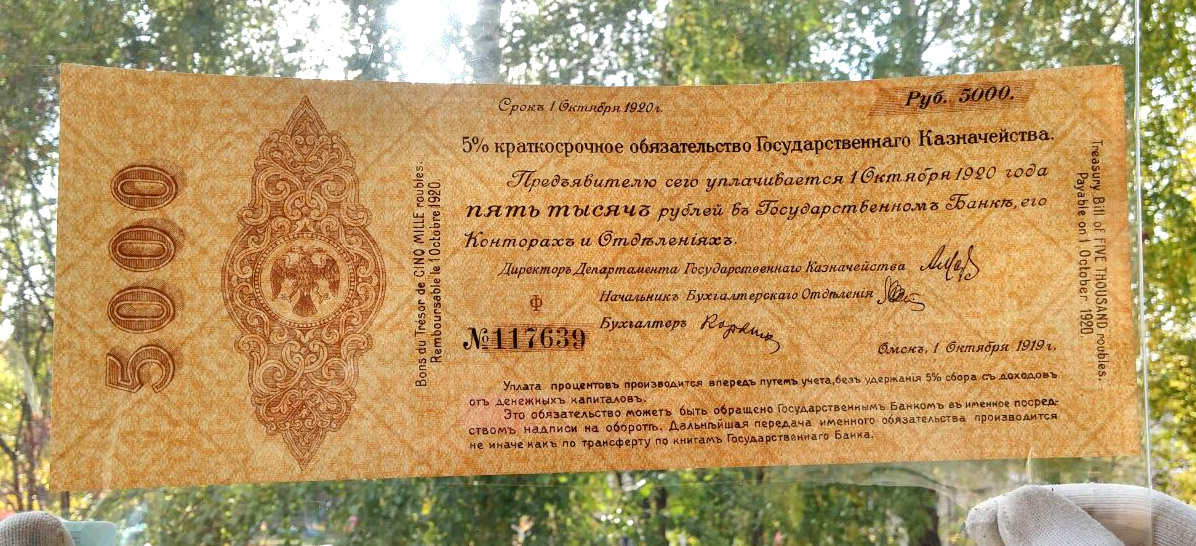 5000
Bons du Trésor de CINQ MILLE roubles.
Remboursable le 1 Octobre 1920.
Срокъ 1 Октября 1920 г.
Руб. 5000.
5% краткосрочное обязательство Государственнаго Казначейства.
Предъявителю сего уплачивается 1 Октября 1920 года
пять тысячъ рублей въ Государственномъ Банкѣ, его
Конторахъ и Отдѣленіяхъ.
Директоръ Департамента Государственнаго Казначейства
Начальникъ Бухгалтерскаго Отдѣленія
Ф
Бухгалтеръ
№117639
Омскъ, 1 Октября 1919 г.
Уплата процентовъ производится впередъ путемъ учета, безъ удержанія 5% сбора съ доходовъ
отъ денежныхъ капиталовъ.
Это обязательство можетъ быть обращено Государственнымъ Банкомъ въ именное посред-
ствомъ надписи на оборотѣ. Дальнѣйшая передача именного обязательства производится
не иначе какъ по трансферту по книгамъ Государственнаго Банка.
Treasury Bill of FIVE THOUSAND roubles.
Payable on 1 October 1920.